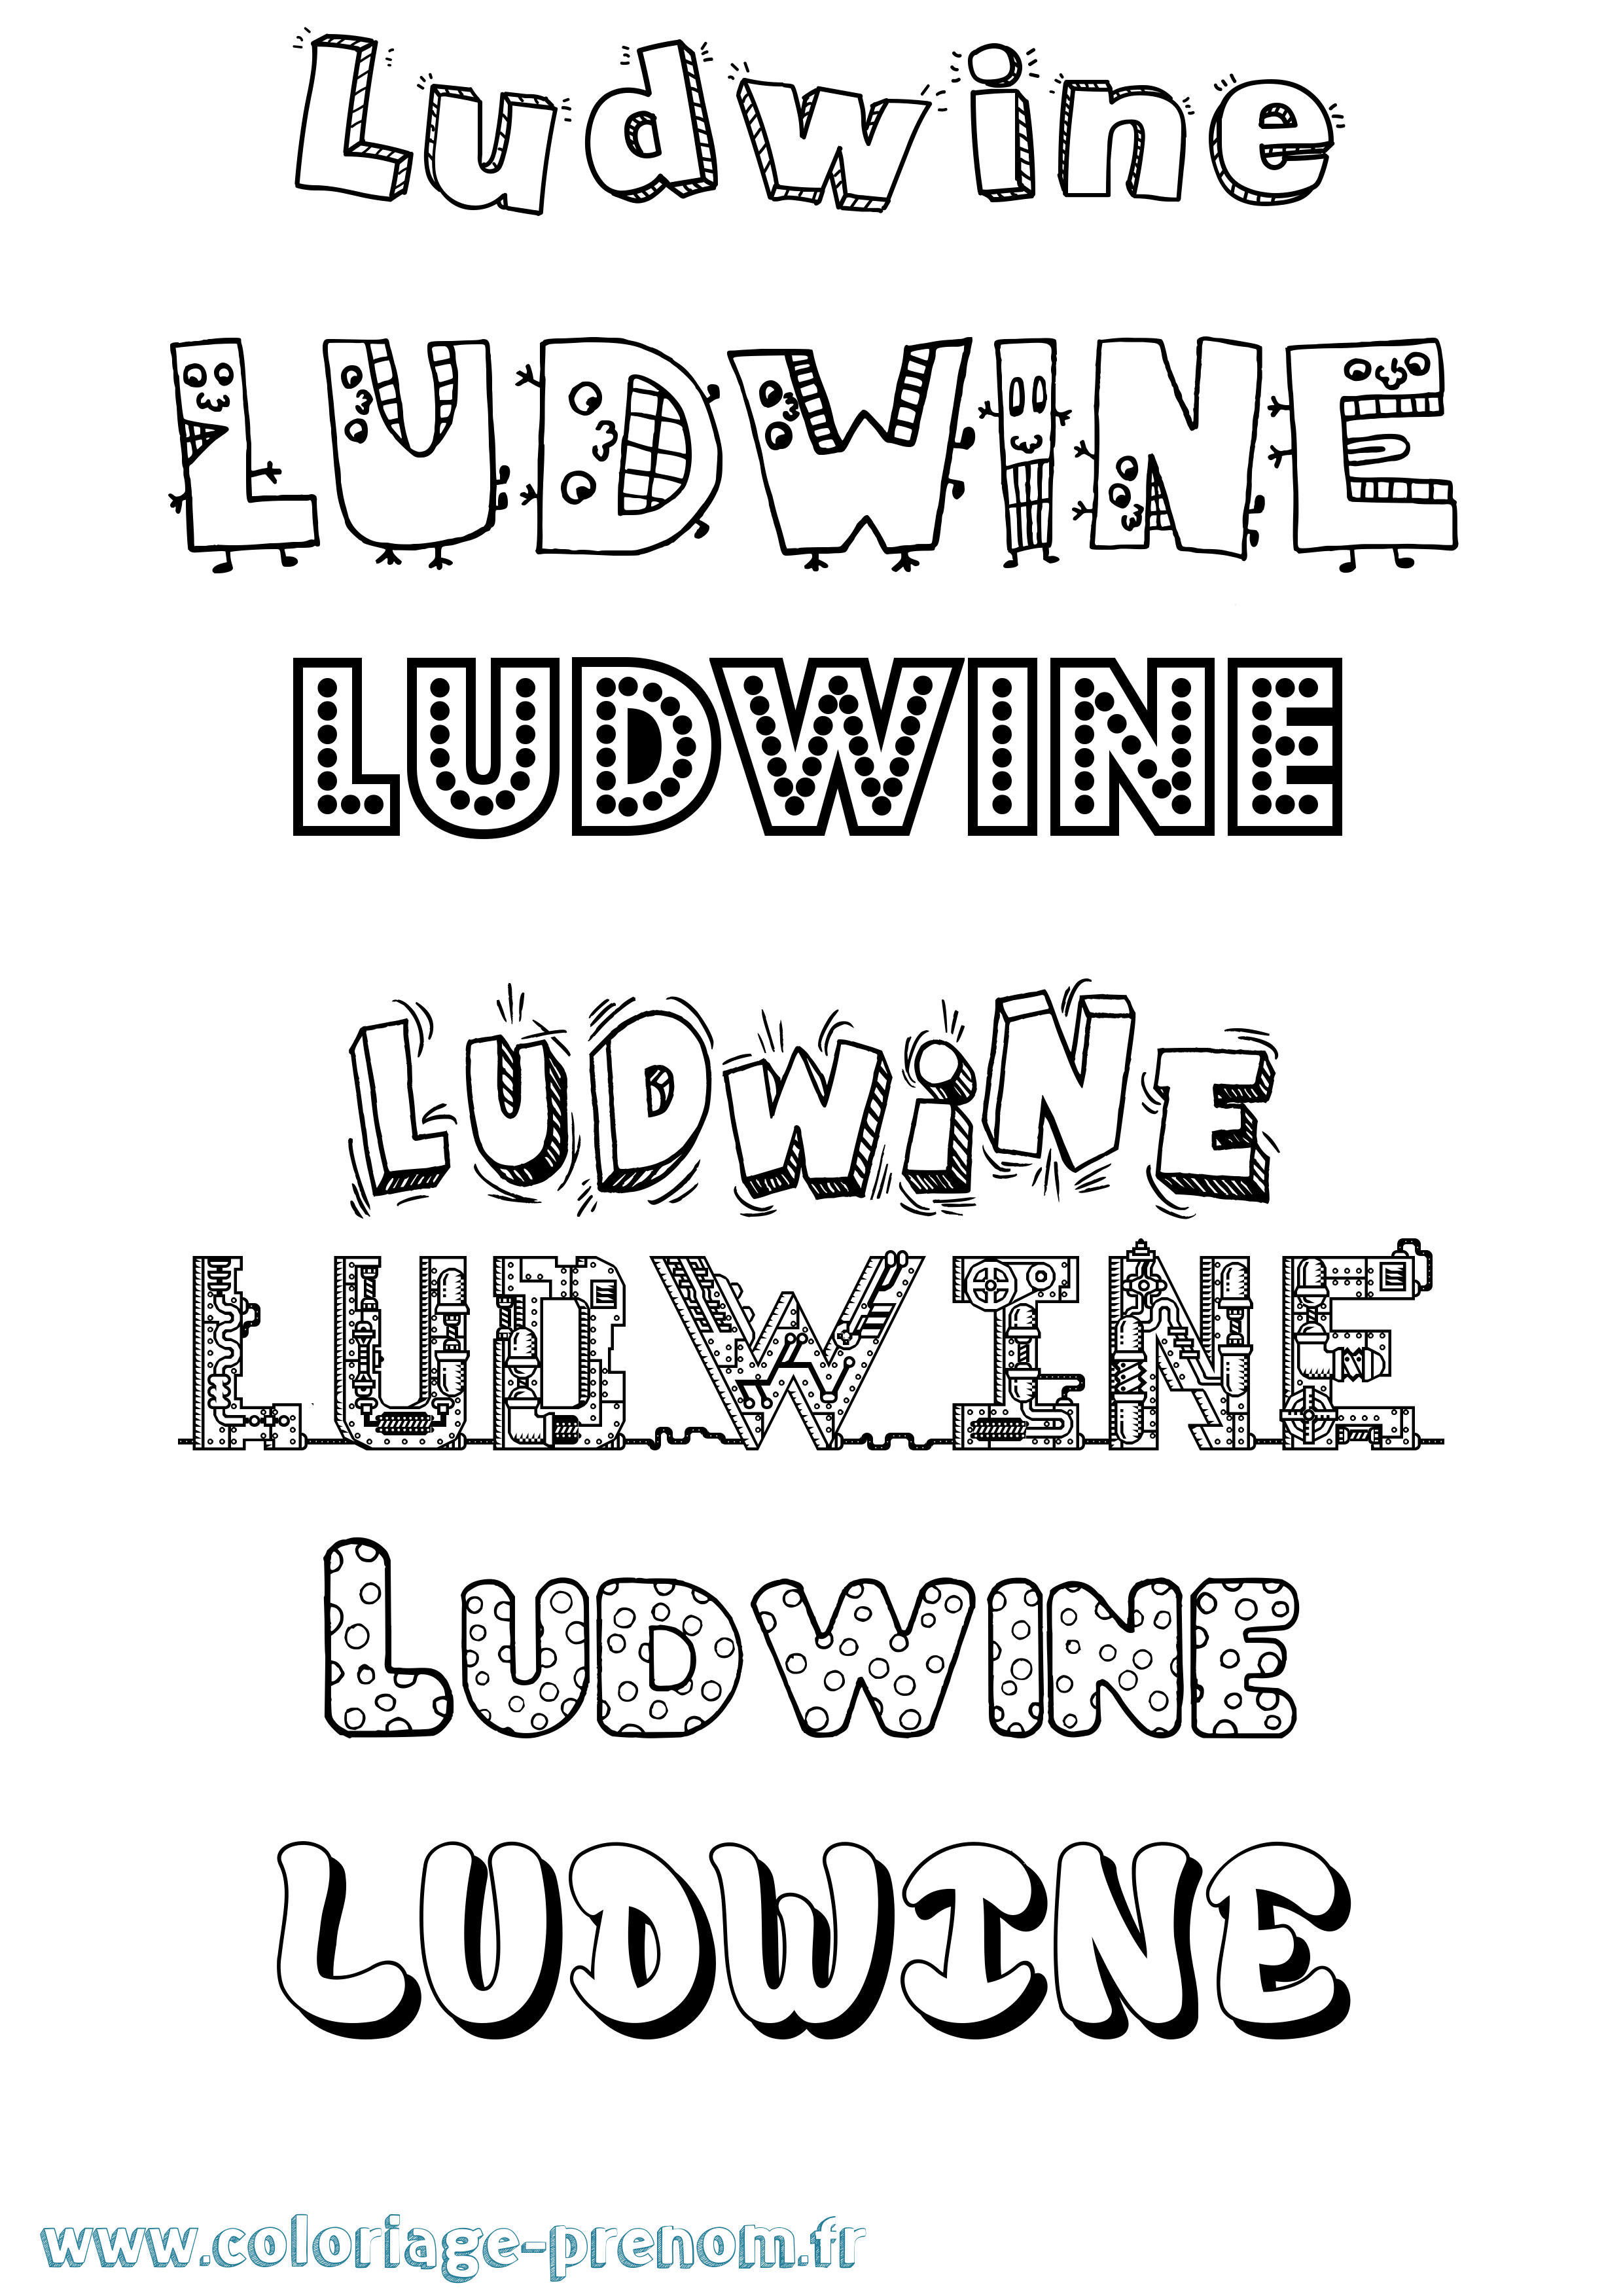 Ludwine
LUDWINE
LUDWINE
LUDWiNE
LUDWINE
LUDWINE
LUDWINE
www.coloriage-prenom.fr